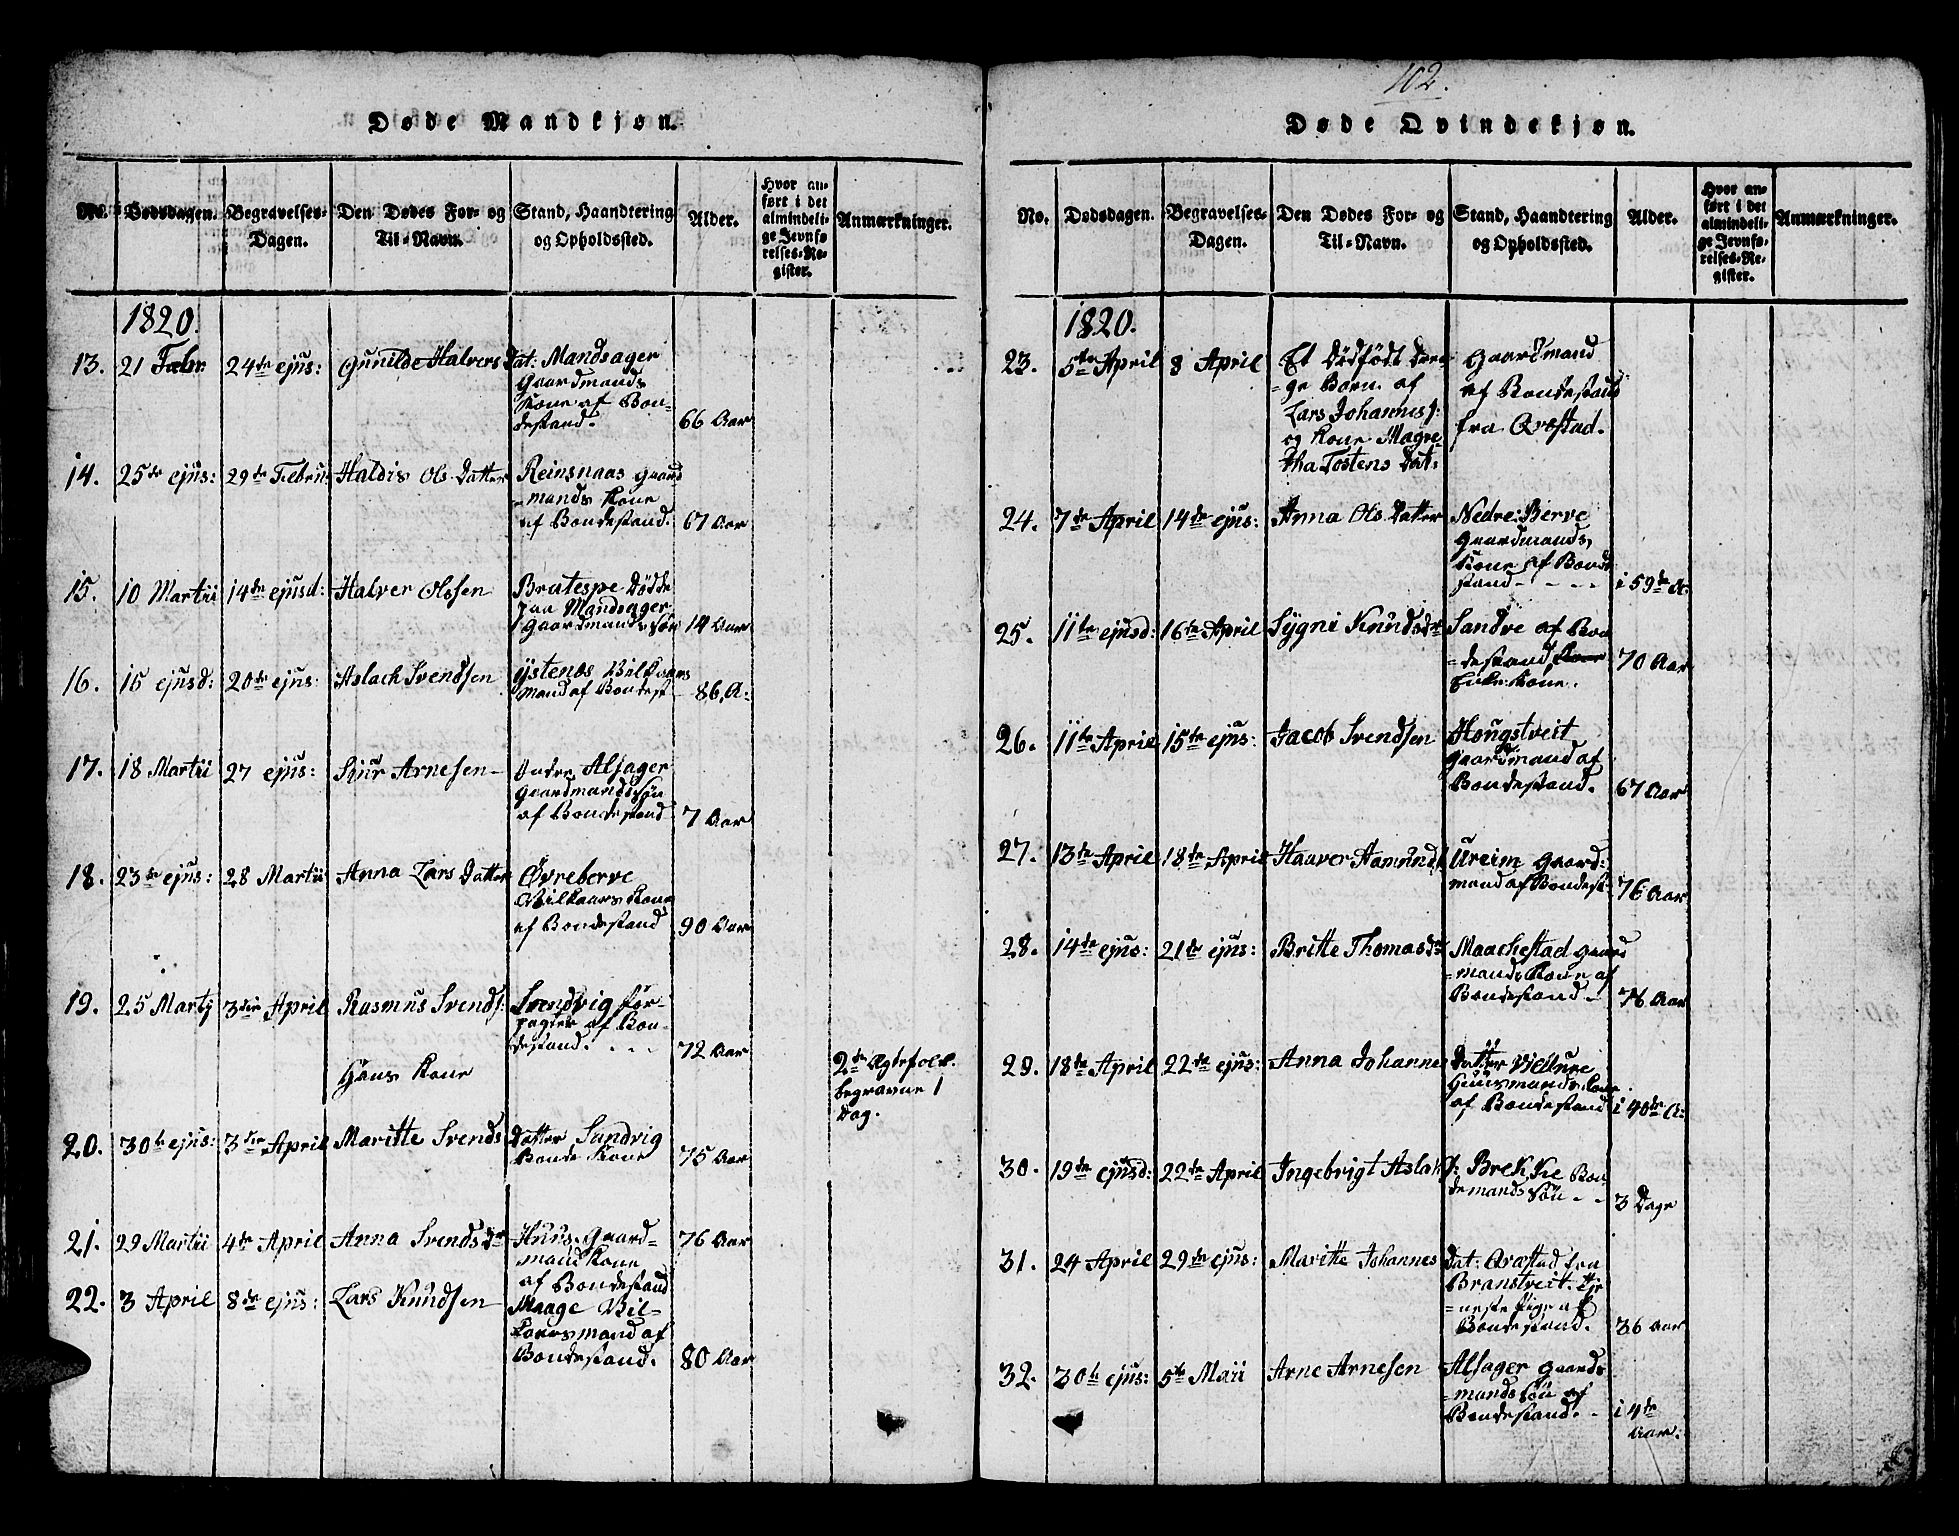 Døde Mandkjøn.
No. Dødsdagen. Begravelses-Dagen. Den Dødes For- og Til-Navn. Stand, Haandtering og Opholdssted. Alder. Hvor anført i det almindelige Jevnførelses-Register. Anmærkninger.
1820.
13. 21 Febr. 24de ejus: Gunilde Halvers Dat: Mandsager
Gaardmands
Kone af Bon-
destand. 66 Aar
14. 25de ejus: 29de Februar Haldis Ols Datter Reinsnaas Gaard
-mands Kone
af Bondestand. 67 Aar
15. 10 Martii 14de ejusd: Halver Olssen Bratespe Dødde
paa Mandsager
gaardmands søn 14 Aar
16. 15 ejusd: 20de ejus: Aslach Svendsen Ystenæs Vilkaars
mand af Bondest 86 A:
17. 18 Martii 27 ejus: Siur Arnesen Alsager
Gaardmands Søn
af Bondestand 7 Aar
18. 23de ejus: 28 Martii Anna Lars Datter Øvreberve
Vilkaars Kone
af Bondestand 90 Aar
19. 25 Martij 3die April Rasmus Svends: Svendvig for-
pagter af Bon-
destand. 72 Aar
Hans Kone
2de Ægtefolk
begravne 1
Dag.
20. 30te ejus: 3die April Maritte Svends Datter Sandvig
Bonde Kone 75 Aar
21. 29 Martii 4de April Anna Svendsdr Huus Gaard-
mand Kone
af Bondestand 76 Aar
22. 3 April 8de ejus: Lars Knudsen Maage Vil-
kaarsmand af
Bondestand. 80 Aar
102.
Døde Qvindekjøn.
No. Dødsdagen. Begravelses-Dagen. Den Dødes For- og Til-Navn. Stand, Haandtering og Opholdssted. Alder. Hvor anført i det almindelige Jevnførelses-Register. Anmærkninger.
1820.
23. 5te April 8 April Et Dødfødt Dren-
-ge Barn af
Lars Johanness:
og Kone Magre-
tha Tostens Dat:
Gaardmand
af Bondestand
fra Qvæstad.
24. 7de April 14de ejus: Anna Ols Datter Nedre: Berve
Gaardmands
Kone af Bonde
stand i 59de A:
25. 11te ejusd: 16te April Sygni Knudsdr Sandve af Bon
-destand
Enke Kone. 70 Aar
26. 11te April 15de ejus: Jacob Svendsen Hougstveit
Gaardmand af
Bondestand. 67 Aar
27. 13de April 18de April Haaver Aamunds Ureim Gaard:
mand af Bondest: 76 Aar
28. 14de ejus: 21de ejus: Britte Thomasdr Maachestad Gaard
-mands Kone af
Bondestand 76 Aar
29. 18de April 22de ejus: Anna Johannes Datter Villure
Huusmands Kone
af Bondestand i 40de A:
30. 19de ejusd: 22de April Ingebrigt Aslaks: Brekke Bon
demands søn 3 Dage
31. 24 April 29de ejus: Maritte Johannes Dat: Qvæstad fra
Branstveit. Tje
-neste Pige af
Bondestand. 36 Aar
32. 30te ejus: 5te Maii Arne Arnesen Alsager Gaards
-mands søn af
Bondestand. i 4de
Aar.